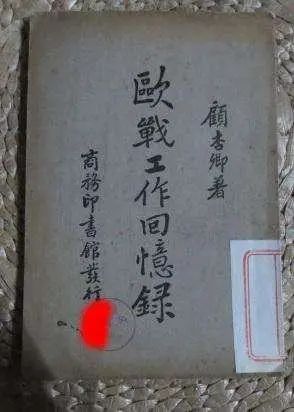 顧杏卿著
歐戰工作回憶録
商務印書館發行